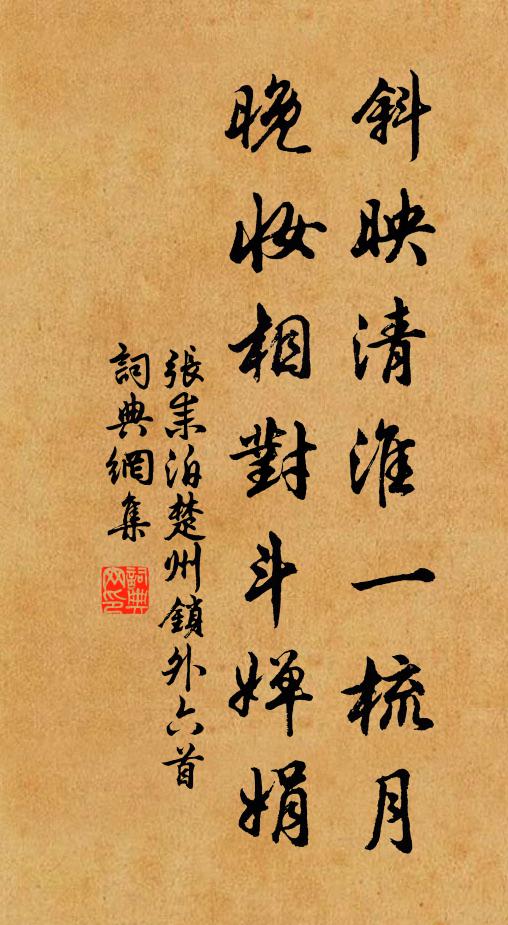 斜映清淮一梳月
晚妝相對斗嬋娟
張耒泊楚州鎖外六首
詞典網集
詞典網印